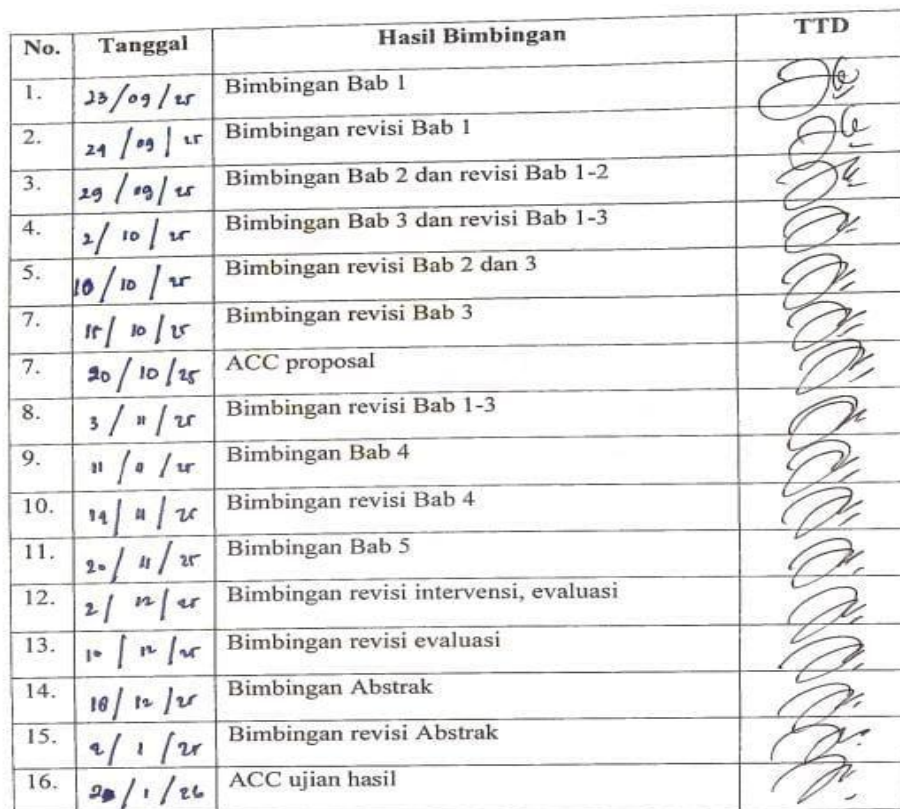 No. Tanggal Hasil Bimbingan TTD
1. 23/09/25 Bimbingan Bab 1
2. 24/09/25 Bimbingan revisi Bab 1
3. 29/09/25 Bimbingan Bab 2 dan revisi Bab 1-2
4. 2/10/25 Bimbingan Bab 3 dan revisi Bab 1-3
5. 10/10/25 Bimbingan revisi Bab 2 dan 3
7. 15/10/25 Bimbingan revisi Bab 3
7. 20/10/25 ACC proposal
8. 3/11/25 Bimbingan revisi Bab 1-3
9. 11/11/25 Bimbingan Bab 4
10. 14/11/25 Bimbingan revisi Bab 4
11. 20/11/25 Bimbingan Bab 5
12. 2/12/25 Bimbingan revisi intervensi, evaluasi
13. 10/12/25 Bimbingan revisi evaluasi
14. 18/12/25 Bimbingan Abstrak
15. Bimbingan revisi Abstrak
16. ACC ujian hasil